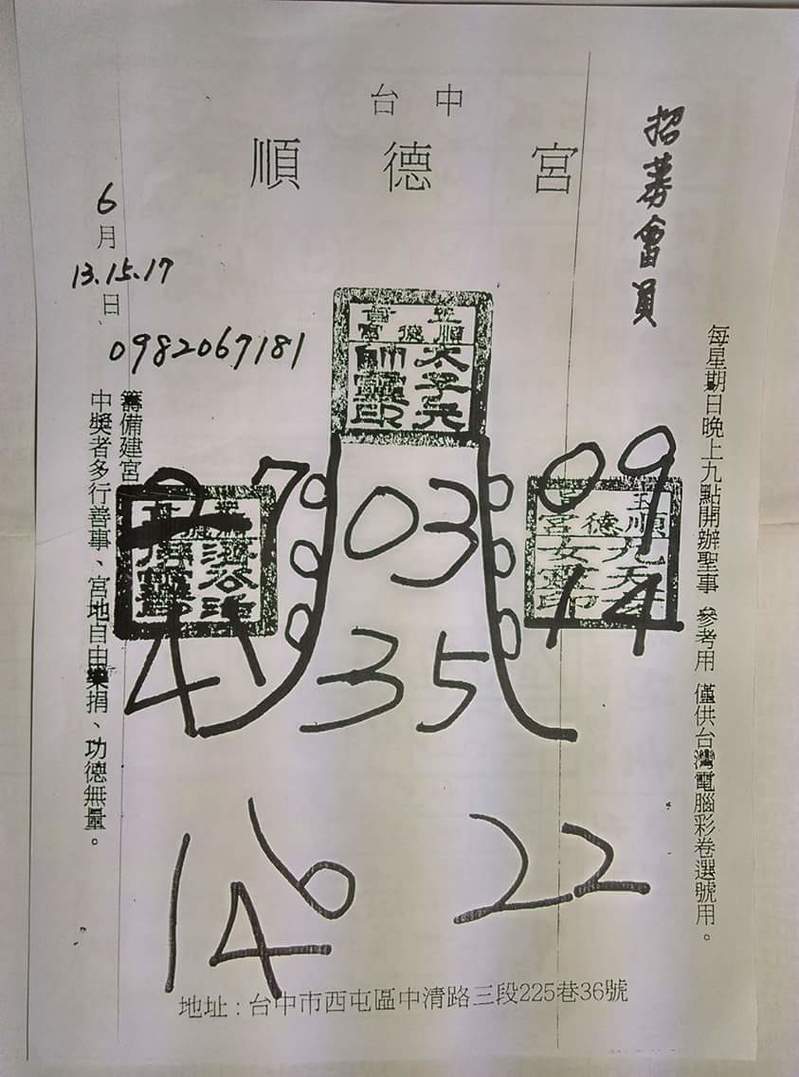 台中
順德宮
招募會員
每星期日晚上九點開辦聖事 參考用 僅供台灣電腦彩卷選號用。
6月
13.15.17
日
0982067181
玉順德宮
太子元帥靈印
03
35
09
14
27
41
籌備建宮
中獎者多行善事、宮地自由樂捐、功德無量。
146
22
地址：台中市西屯區中清路三段225巷36號